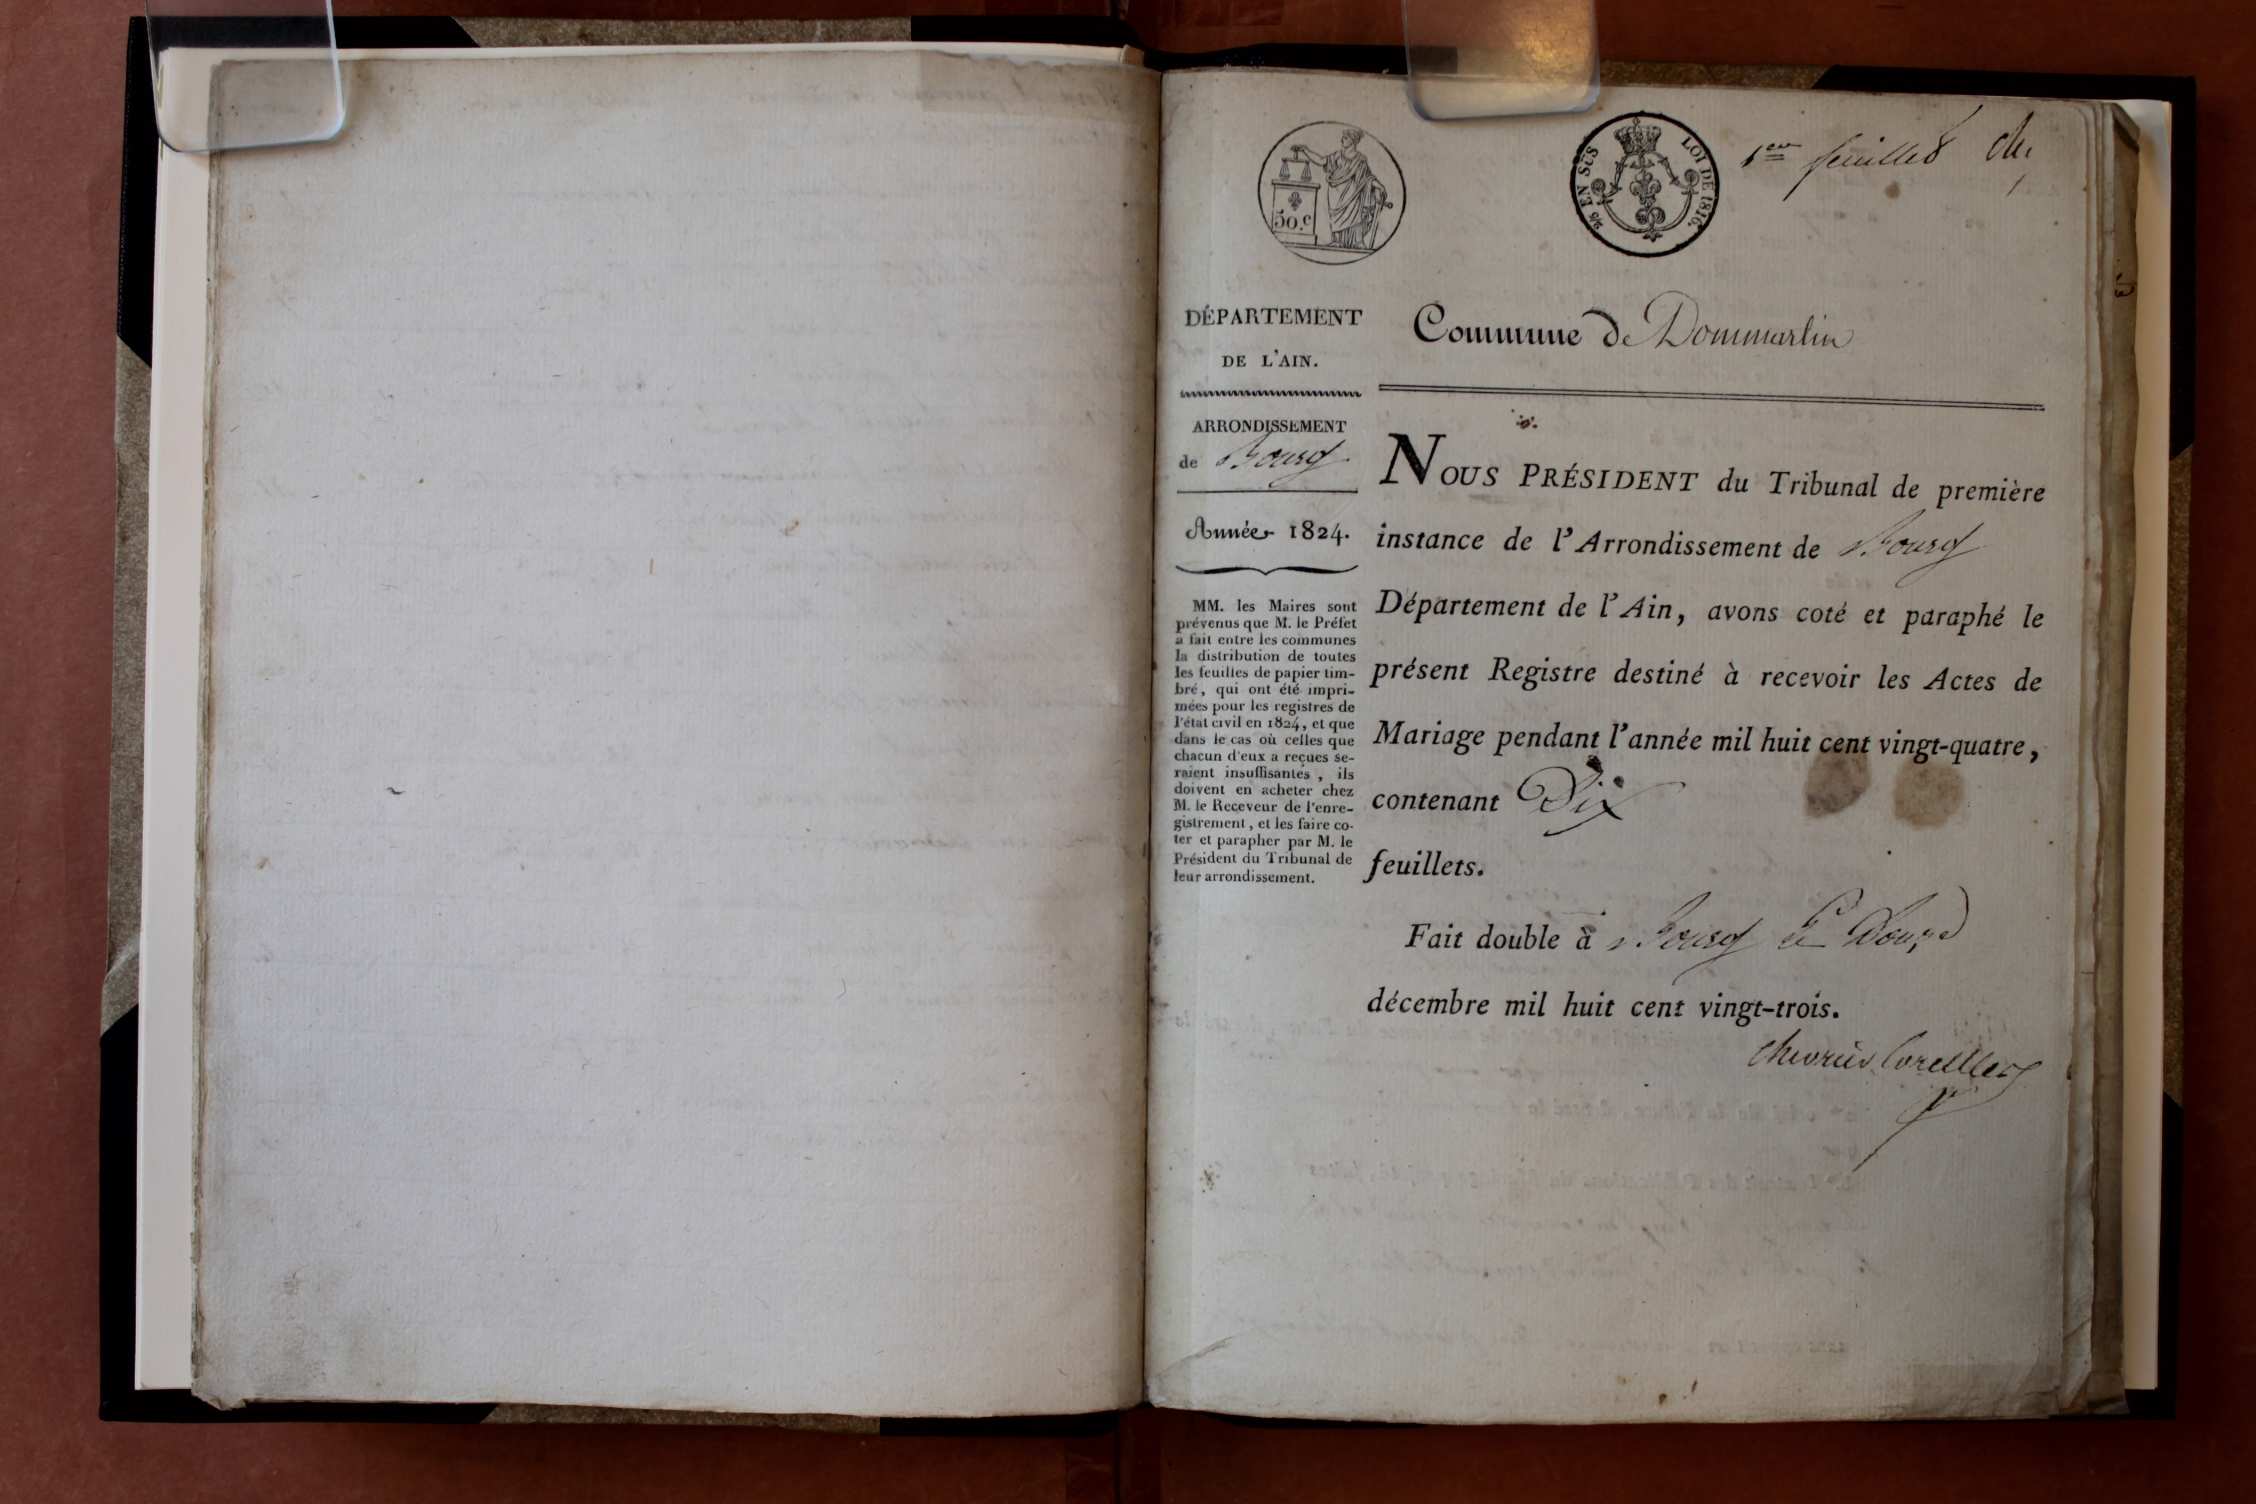 50.c
2/5 EN SUS LOI DE 1816.
1er feuillet
DÉPARTEMENT
DE L'AIN.
Commune de Dommartin
ARRONDISSEMENT
de Bourg
Année 1824.
MM. les Maires sont
prévenus que M. le Préfet
a fait entre les communes
la distribution de toutes
les feuilles de papier tim-
bré, qui ont été impri-
mées pour les registres de
l'état civil en 1824, et que
dans le cas où celles que
chacun d'eux a reçues se-
raient insuffisantes, ils
doivent en acheter chez
M. le Receveur de l'enre-
gistrement, et les faire co-
ter et parapher par M. le
Président du Tribunal de
leur arrondissement.
NOUS PRÉSIDENT du Tribunal de première
instance de l'Arrondissement de Bourg
Département de l'Ain, avons coté et paraphé le
présent Registre destiné à recevoir les Actes de
Mariage pendant l'année mil huit cent vingt-quatre,
contenant Dix
feuillets.
Fait double à Bourg le Douze
décembre mil huit cent vingt-trois.